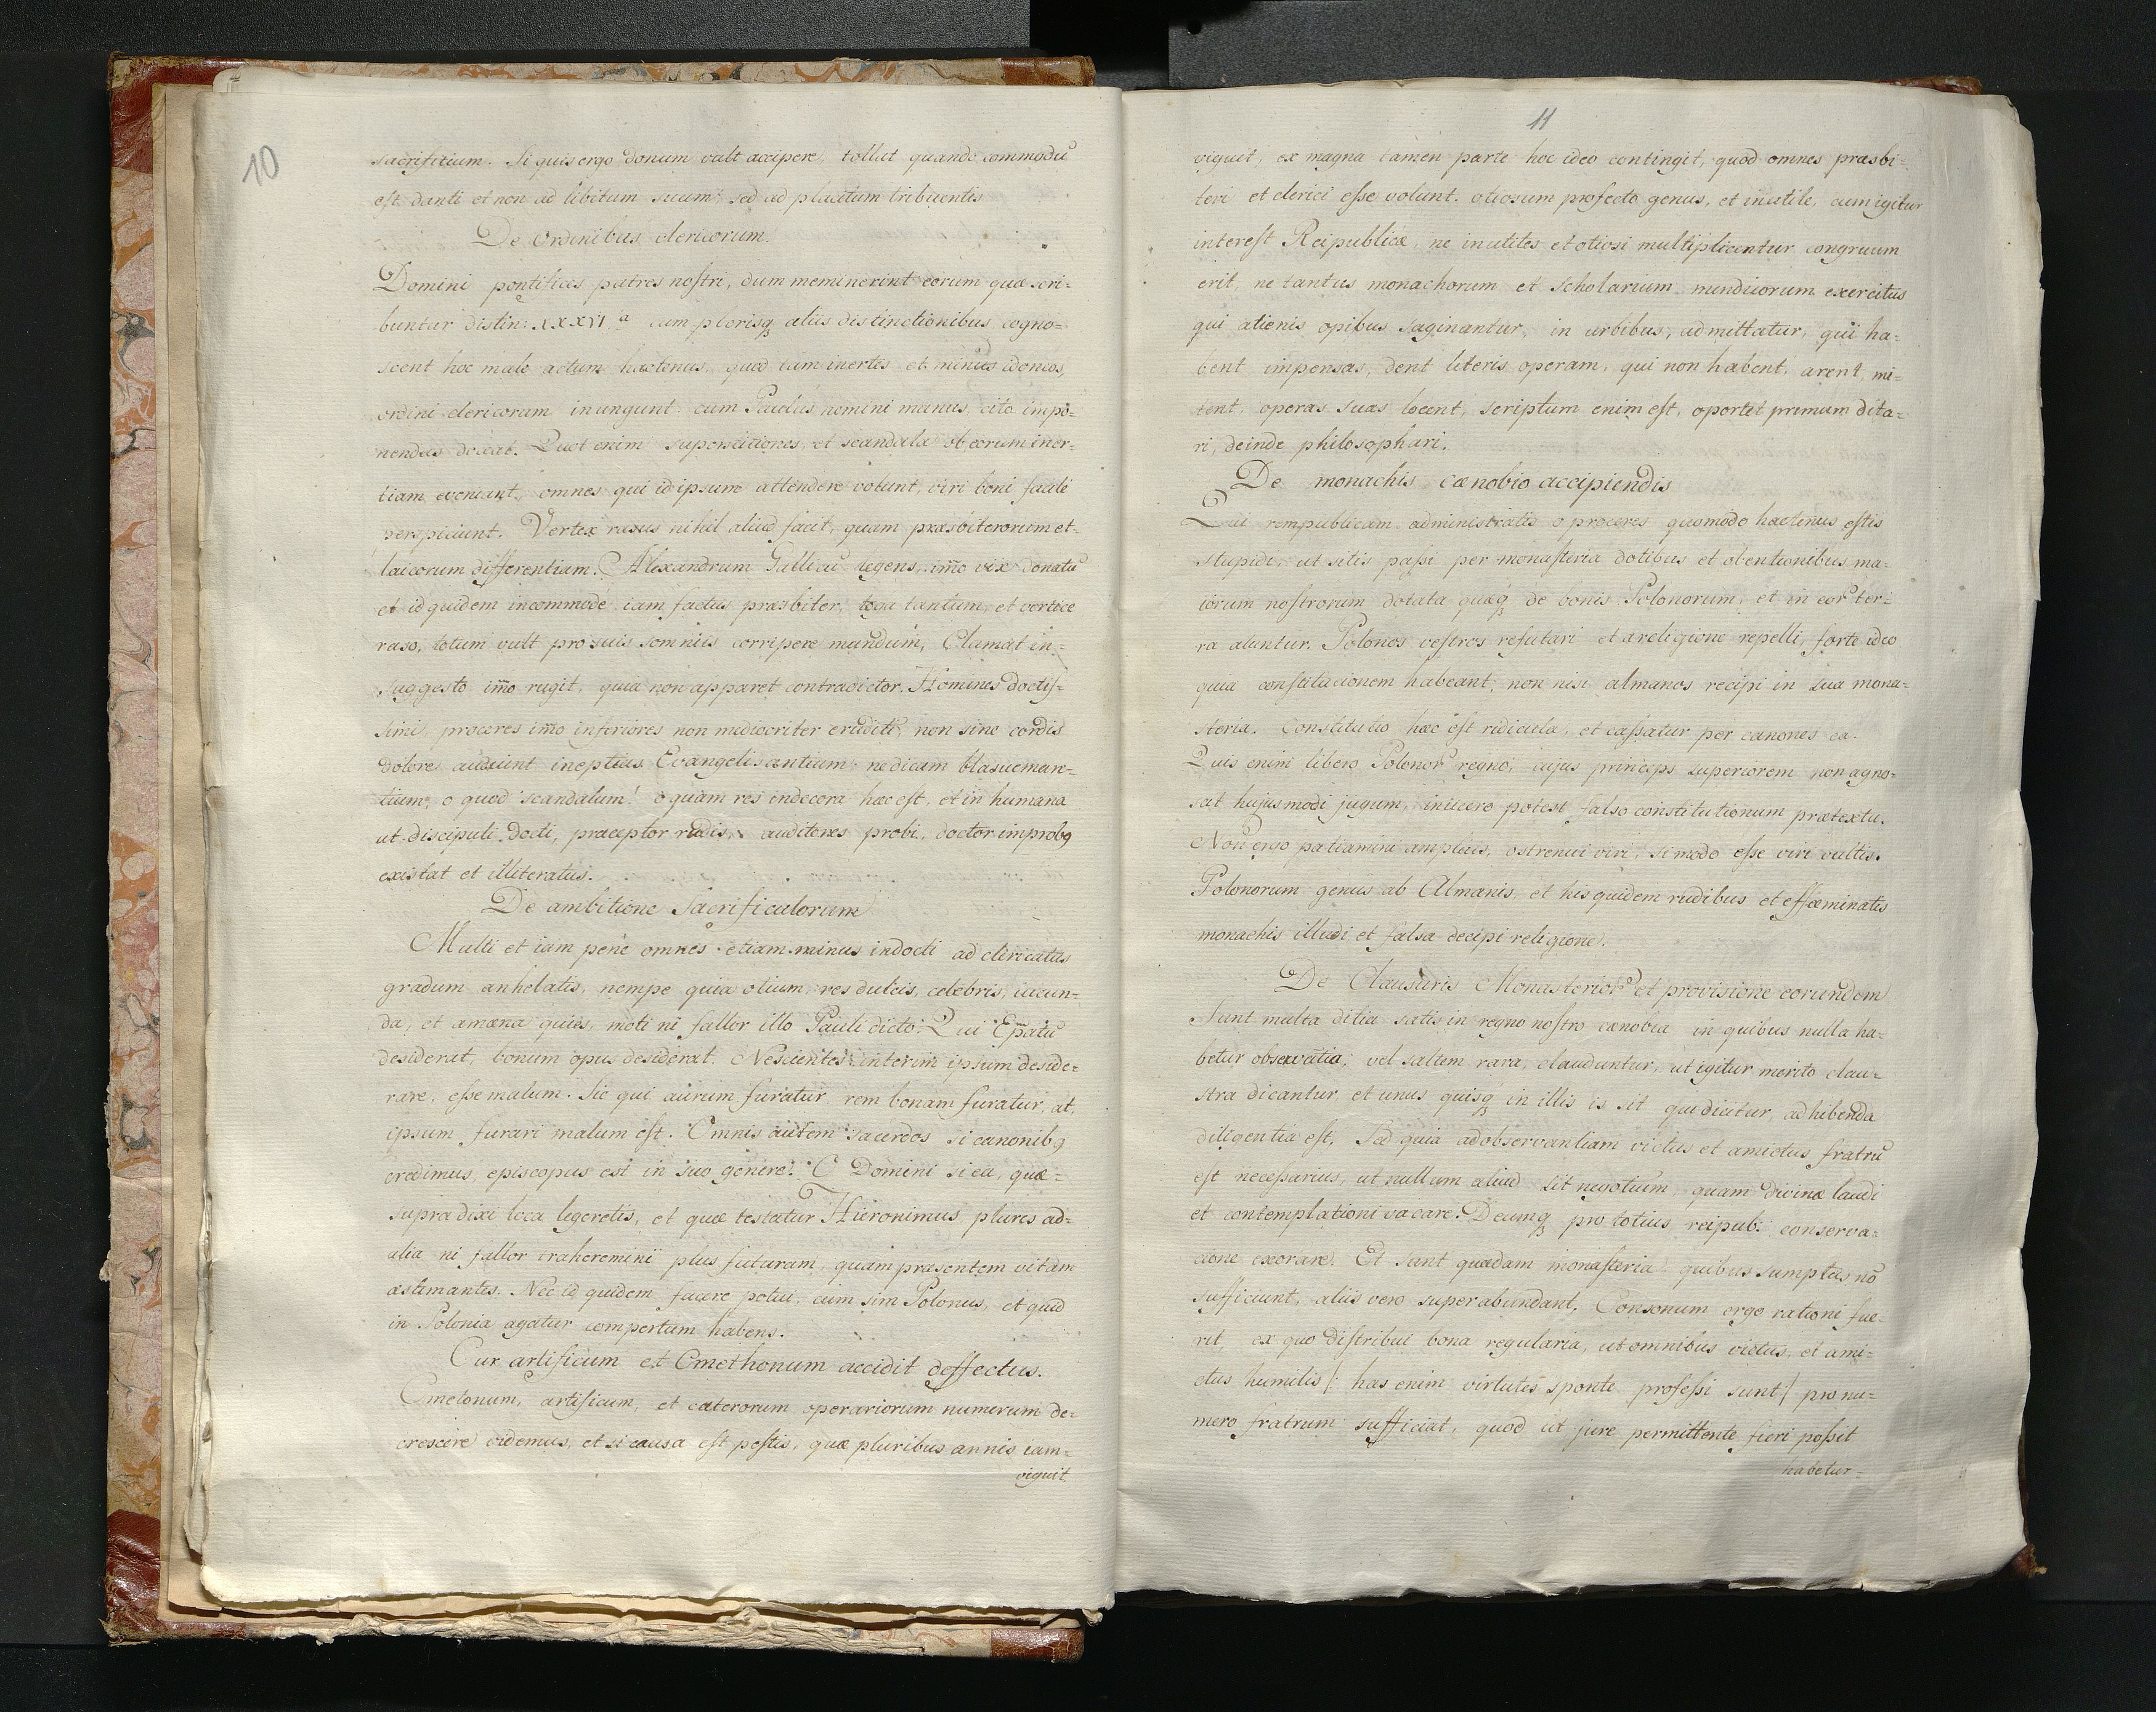 10
sacrifitium. Si quis ergo donum vult accipere tollat quando commodũ
est danti et non ad libitum suum, sed ad placitum tribuentis
De Ordinibus clericorum.
Domini pontifices patres nostri, dum meminerint eorum quæ scri-
buntur distin: XXXVI.ª cum plerisq₃ aliis distinctionibus cogno=
scent hoc male actum hactenus, quod tam inertes et minus idoneos,
ordini clericorum inungunt: cum Paulus nemini manus cito impo=
nendas doceat. Quot enim superstitiones, et scandala ob eorum iner-
tiam eveniant, omnes qui id ipsum attendere volunt, viri boni facile
perspiciunt. Vertex rasus nihil aliud facit, quam præsbiterorum et-
laicorum differentiam. Alexandrum Gallicũ legens, im̃o vix donatũ
et id quidem incommode iam factus præsbiter, toga tantum, et vertice
raso, totum vult pro suis somniis corripere mundum, Clamat in=
suggesto im̃o rugit, quia non apparet contradictor. Homines doctis-
simi, proceres im̃o inferiores non mediocriter eruditi, non sine cordis
dolore audiunt ineptias Evangelisantium: ne dicam blasueman-
tium, o quod scandalum! o quam res indecora hæc est, et in humana
ut discipuli docti, præceptor rudis, auditores probi, doctor improbꝯ
existat et illiteratus.
De ambitione Sacrificulorum
Multi et iam pene omnes etiam minus indocti ad clericatus
gradum anhelatis, nempe quia otium, res dulcis, celebris, iucun-
da, et amæna quies, moti ni fallor illo Pauli dicto: Qui Ep̃atũ
desiderat, bonum opus desiderat. Nescientes interim ipsum deside=
rare, esse malum. Sic qui aurum furatur rem bonam furatur, at
ipsum furari malum est. Omnis autem sacerdos si canonibꝯ
credimus, episcopus est in suo genere. O Domini si ea, quæ=
supra dixi loca legeretis, et quæ testatur Hieronimus plures ad=
alia ni fallor traheremini plus futuram, quam præsentem vitam
æstimantes. Nec id quidem facere potui, cum sim Polonus, et quid
in Polonia agatur compertum habens.
Cur artificum et Cmethonum accidit deffectus.
Cmetonum, artificum, et cæterorum operariorum numerum de=
crescere videmus, et si causa est pestis, quæ pluribus annis iam-
viguit
11
viguit, ex magna tamen parte hoc ideo contingit, quod omnes præsbi=
teri et clerici esse volunt. otiosum profecto genus, et inutile, cum igitur
interest Reipublicæ, ne inutiles et otiosi multiplicentur congruum
erit, ne tantus monachorum et Scholarium mendicorum exercitus
qui alienis opibus saginantur, in urbibus, admittatur, qui ha-
bent impensas, dent literis operam, qui non habent, arent, mi=
tent, operas suas locent, scriptum enim est, oportet primum dita=
ri, deinde philosophari.
De monachis cænobio accipiendis
Qui rempublicam administratis o proceres quomodo hactenus estis
stupidi, ut sitis passi per monasteria dotibus et obentionibus ma-
iorum nostrorum dotata quæq₃ de bonis Polonorum, et in eorꝝ ter-
ra aluntur. Polonos vestros refutari et a religione repelli, forte ideo
quia constitutionem habeant, non nisi almanos recipi in sua mona-
steria. Constitutio hæc est ridicula, et cassatur per canones ea.
Quis enim libero Polonorꝝ regno, cujus princeps superiorem non agno-
scit hujusmodi jugum, inicere potest falso constitutionum prætextu.
Non ergo patiamini amplius, o strenui viri, si modo esse viri vultis.
Polonorum genus ab Almanis, et his quidem rudibus et effæminatis
monachis illudi et falsa decipi religione.
De Clausuris Monasteriorꝝ et provisione eorundem
Sunt multa ditia satis in regno nostro cænobia in quibus nulla ha-
betur observãtia: vel saltem rara, clauduntur, ut igitur merito clau=
stra dicantur et unus quisq₃ in illis is sit qui dicitur, adhibenda
diligentia est. Sed quia ad observantiam victus et amictus fratrũ
est necessarius, ut nullum aliud sit negotium quam divinæ laudi
et contemplationi vacare. Deumq₃ pro totius reipub: conserva=
cione exorare. Et sunt quædam monasteria quibus sumptus nõ
sufficiunt, aliis vero superabundant. Consonum ergo rationi fue-
rit, ex quo distribui bona regularia, ut omnibus victus, et ami-
ctus humilis /: has enim virtutes sponte professi sunt:/ pro nu-
mero fratrum sufficiat, quod ut jure permittente fieri possit
habetur=